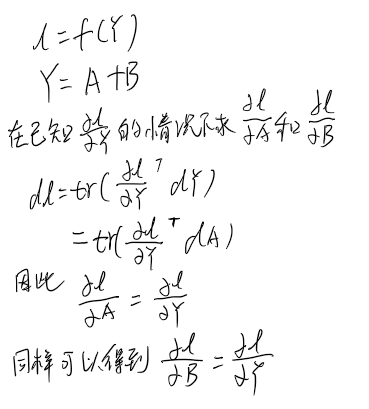 l=f(Y)
Y=A+B
在已知 ∂l/∂Y 的情况下求 ∂l/∂A 和 ∂l/∂B
dl=tr(∂l/∂Y ᵀ dY)
=tr(∂l/∂Y ᵀ dA)
因此 ∂l/∂A = ∂l/∂Y
同样可以得到 ∂l/∂B = ∂l/∂Y